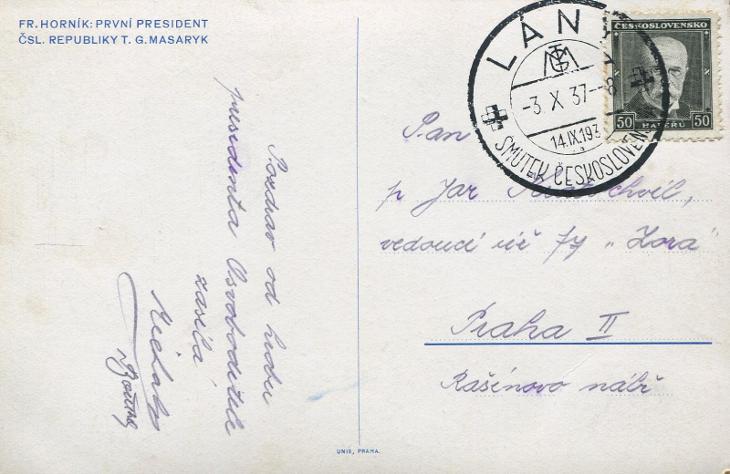 FR. HORNÍK: PRVNÍ PRESIDENT
ČSL. REPUBLIKY T. G. MASARYK
Pozdrav od hrobu
presidenta Osvoboditele
zasílá
ČESKOSLOVENSKO
50 HALÉŘŮ 50
LÁNY
-3 X 37--8
14.IX.193
SMUTEK ČESKOSLOVEN
Pan
p Jar
vedoucí fy „Zora"
Praha II
Rašínovo nábř
UNIE, PRAHA.